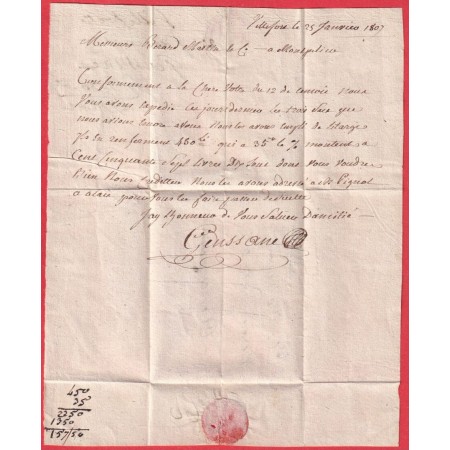 Villefort le 25 Janvier 1807
Messieurs Bérard Martin & Cie a Montpellier
Conformement a la Chere Votre du 12 de nous
Vous avons expedié les jours derniers les trois que
nous avions encore avons
450 qui a 35 le % montent a
Cent Cinquante Sept livres Dix Sous dont vous voudrés
bien Nous Crediter Nous les avons adressé a Mr Pignol
a alais pour vous les faire passer de suite
Jay lhonneur de Vous Saluer Damitié
Genssane
450
35
2250
1350
157/50